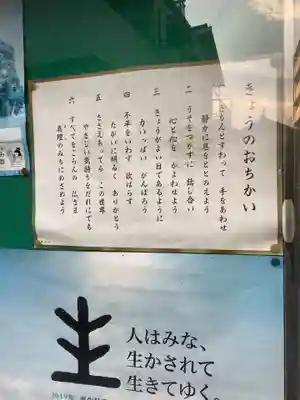 きょうのおちかい
一 きちんとすわって 手をあわせ
静かに息をととのえよう
二 うそをつかずに 話し合い
心と心を かよわせよう
三 きょうがよい日であるように
力いっぱい がんばろう
四 不平をいわず 欲ばらず
たがいに明るく ありがとう
五 ささえあってる この世界
やさしい気持ちをだれにでも
六 すべてをごらんの 仏さま
真理のみちにめざめよう
人はみな、
生かされて
生きてゆく。
2019年